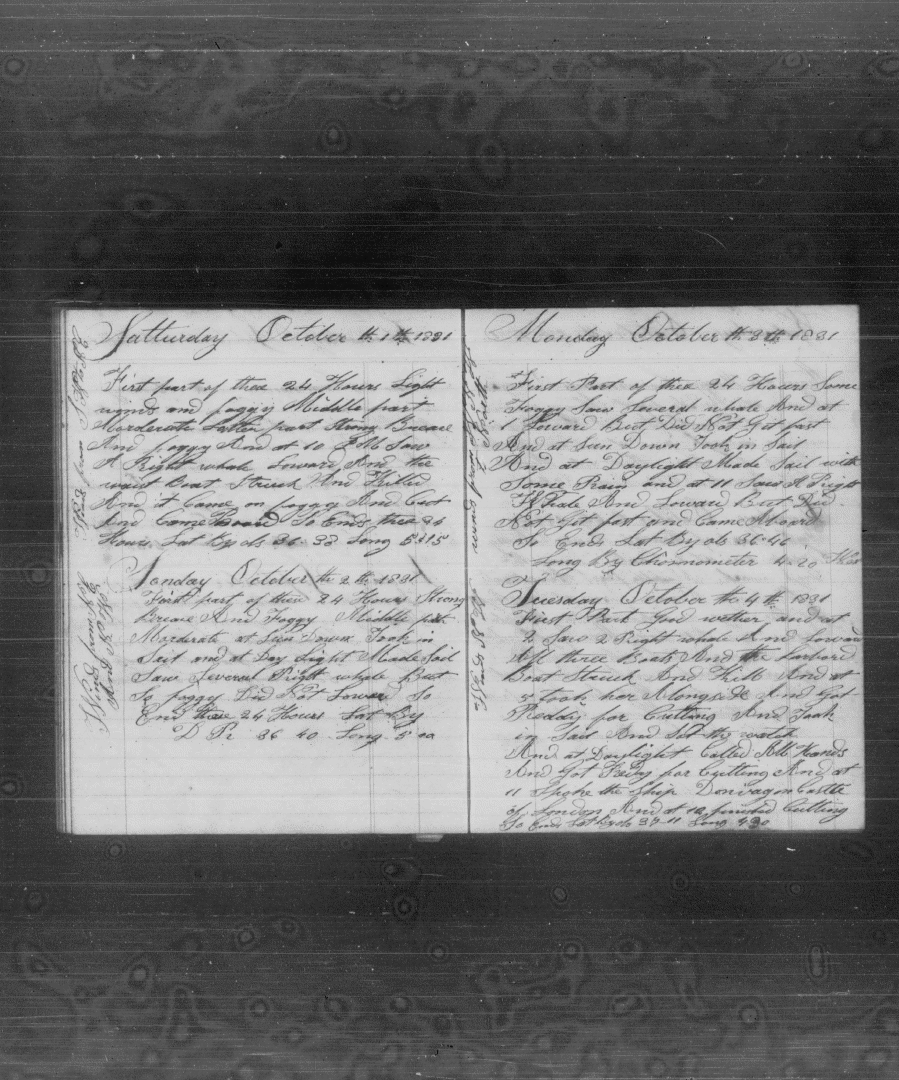 Satturday October th 1th 1831
First part of thee 24 Hours Light
winds and foggy Middle part
Morderate Latter part Strong Breare
And foggy And at 10 Saw
A Right whale Loward And the
waist Boat Struck And Killed
And it Came on foggy And Cut
And Came Board So Ends thee 24
Hours Lat By ob 36 - 33 Long 5:15
Wind from
Sonday October th 2th 1831
First part of thee 24 Hours Strong
Breare And Foggy Middle part
Morderate at Sun Down Took in
Sail and at Day Light Made Sail
Saw Several Right whale But
So foggy Did Not Loward So
End thee 24 Hours Lat By
D R 36 40 Long 5
Wind from
Monday October th 3th 1831
First Part of thee 24 Hours Some
Foggy Saw Several whale And at
1 Loward But Did Not Get fast
And at Sun Down Took in Sail
And at Daylight Made Sail with
Some Rain and at 11 Saw A Right
Whale And Loward But Did
Not Get fast and Came Aboard
So Ends Lat By ob 36-46
Long By Chronometer 4-20
wind from
Tuesday October th 4th 1831
First Part Good wether and at
2 Saw 2 Right whale And Loward
All three Boats And the Larbord
Boat Struck And Kill And at
5 took her Alongside And Got
Reddy for Cutting And Took
in Sail And Set the watch
And at Daylight Called All Hands
And Got Redy for Cutting And at
11 Spoke the Ship Castle
of London And at 12 finished Cutting
So Ends Lat By ob 37-11 Long 4-30
Wind